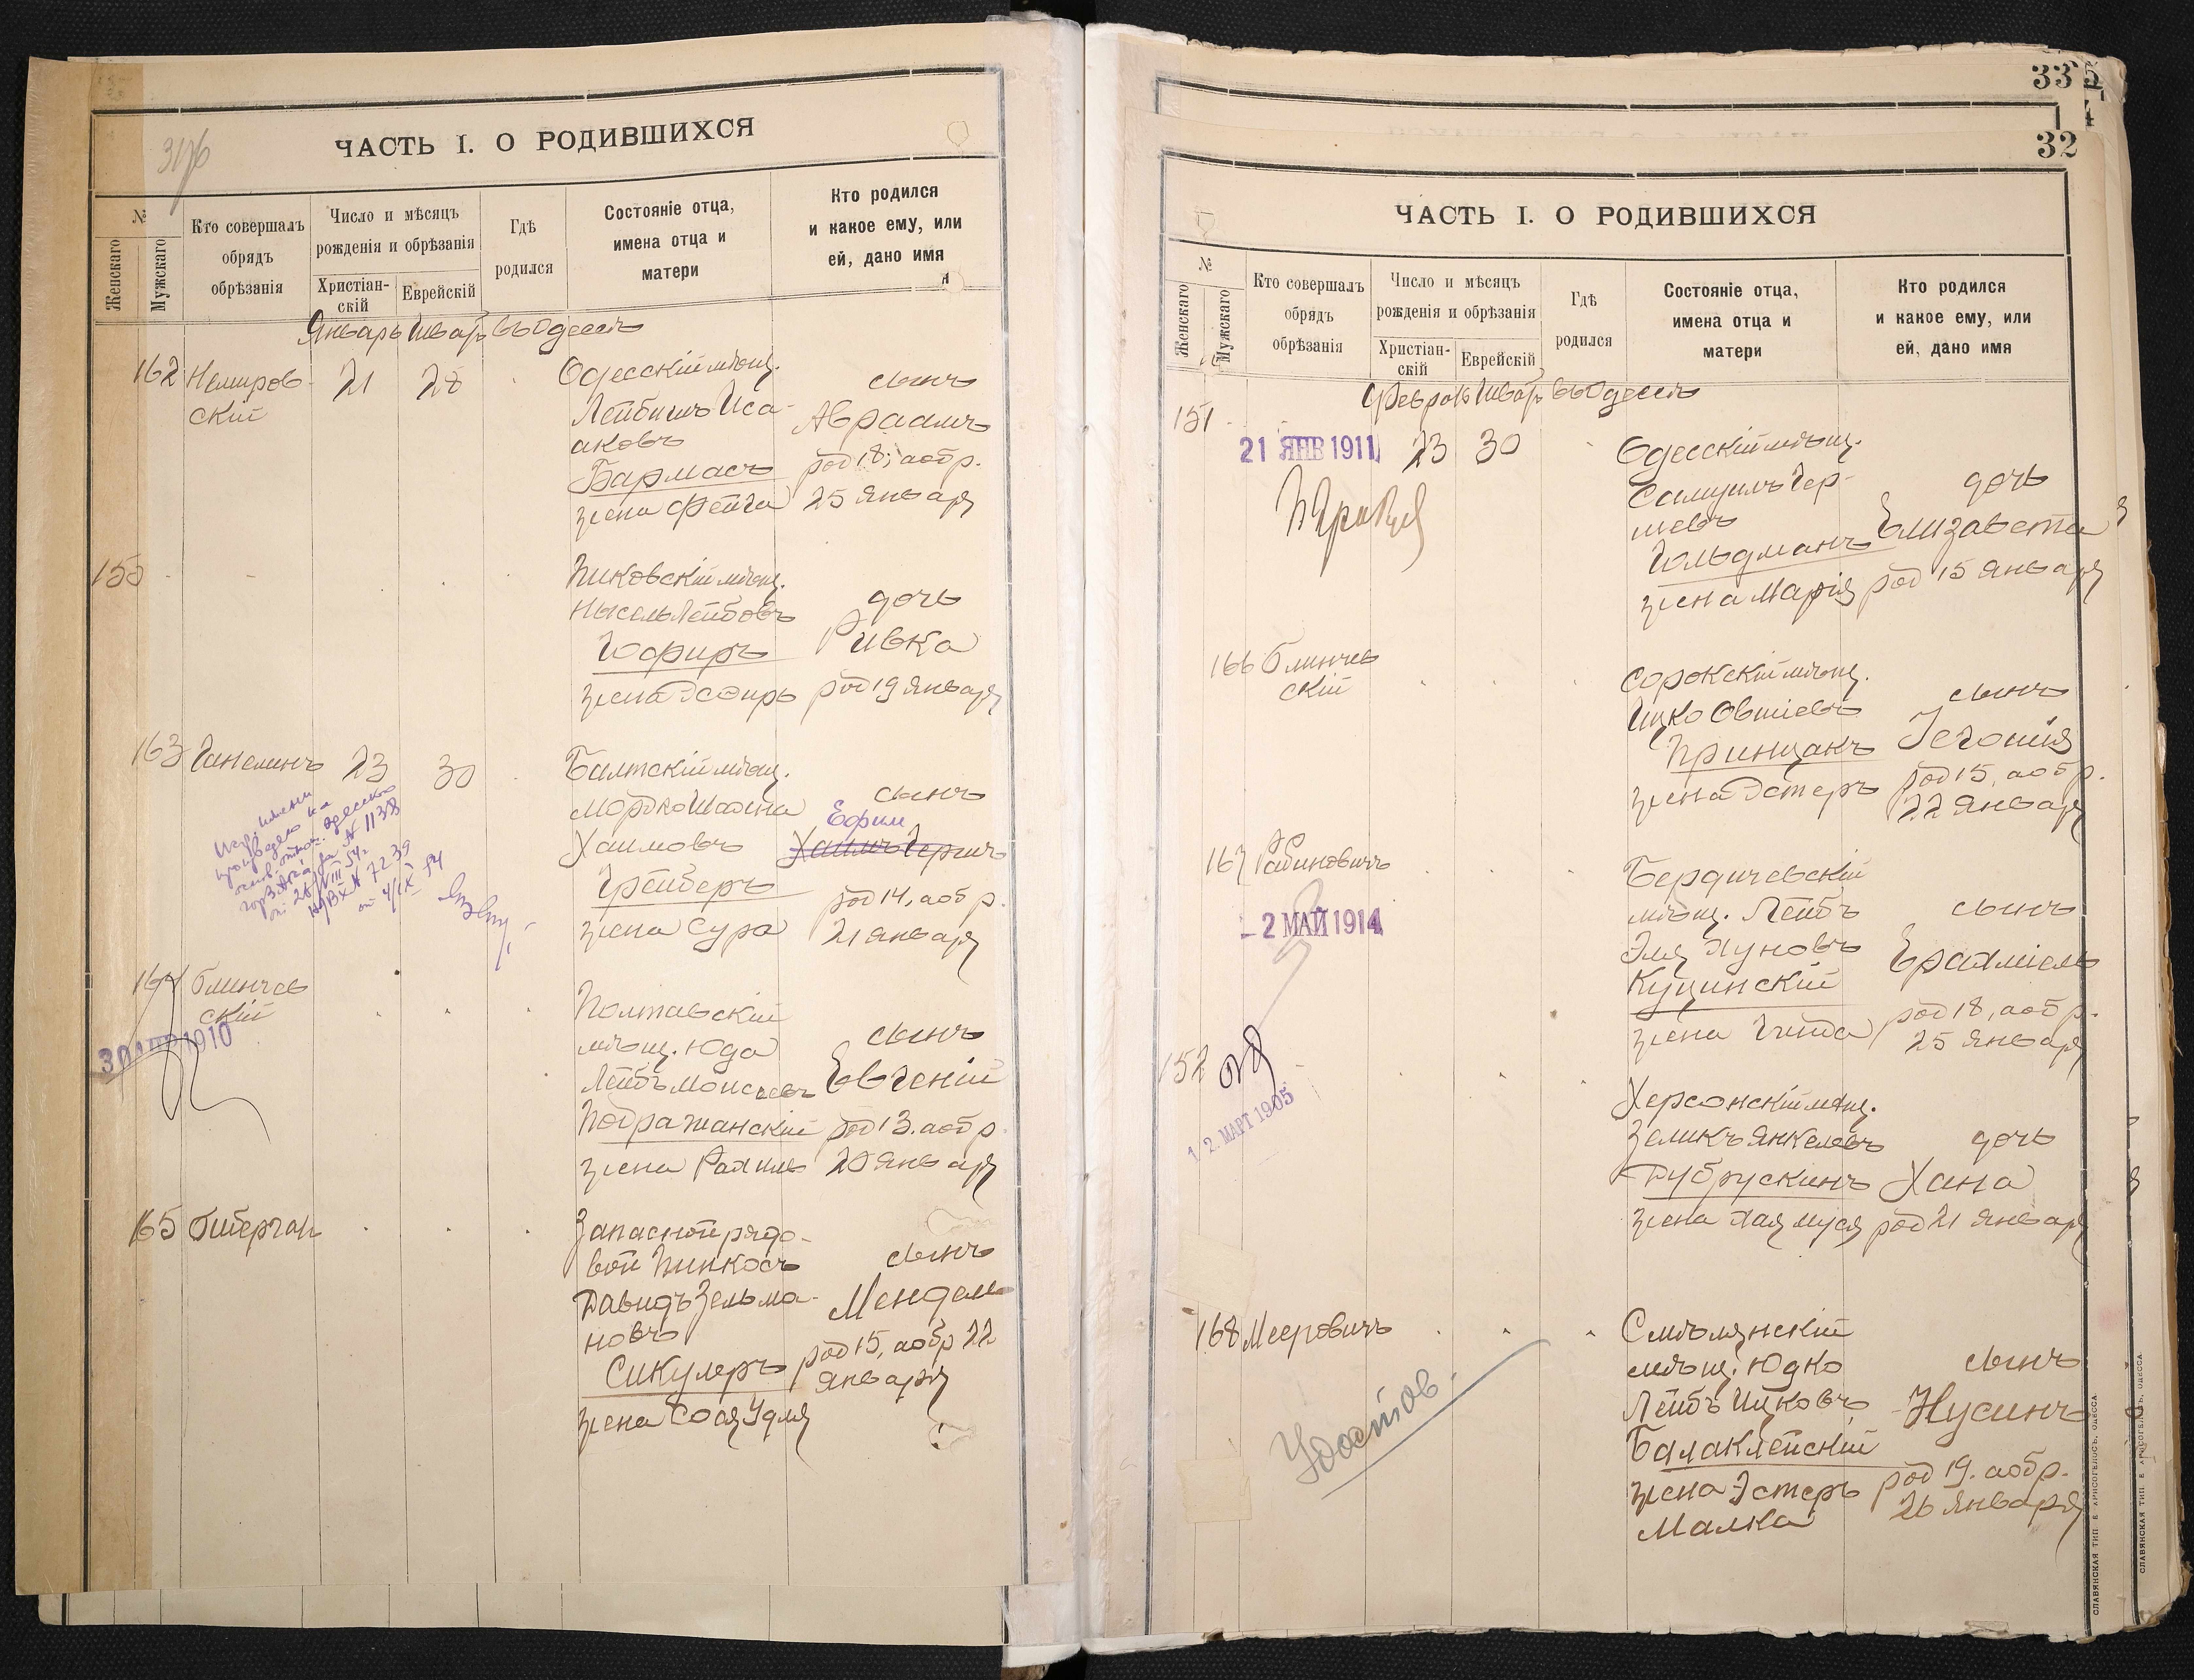 ЧАСТЬ I. О РОДИВШИХСЯ
№
Женскаго
Мужскаго
Кто совершалъ
обрядъ
обрѣзанія
Число и мѣсяцъ
рожденія и обрѣзанія
Христіан-
скій
Еврейскій
Гдѣ
родился
Состояніе отца,
имена отца и
матери
Кто родился
и какое ему, или
ей, дано имя
Январь Шватъ въ Одессѣ
162 Немиров-
скій
21 28
Одесскій мѣщ.
Лейбишъ Иса-
аковъ
Бармасъ
жена Фейга
сынъ
Авраамъ
род 18, а обр.
25 Января
150
Пиковскій мѣщ.
Нысель Лейбовъ
Гофиръ
жена Эсѳирь
дочь
Ривка
род 19 Января
163 Ганелинъ 23 30
Балтскій мѣщ.
Мордко Шахна
Хаимовъ
Грейберъ
жена Сура
сынъ
Ефим
Хаимъ Гершъ
род 14, а обр.
21 Января
164 Блинчев
скій
1910
Полтавскій
мѣщ. Юда
Лейбъ Моисеевъ
Подражанскій
жена Рахиль
сынъ
Евгеній
род 13. а обр
20 Января
165 Гиберган
Запасной рядо-
вой Пинкосъ
Давидъ Зельма-
новъ
Сикулеръ
жена Сося Удля
сынъ
Мендель
род 15, а обр 22
Января
33
32
ЧАСТЬ I. О РОДИВШИХСЯ
№
Женскаго
Мужскаго
Кто совершалъ
обрядъ
обрѣзанія
Число и мѣсяцъ
рожденія и обрѣзанія
Христіан-
скій
Еврейскій
Гдѣ
родился
Состояніе отца,
имена отца и
матери
Кто родился
и какое ему, или
ей, дано имя
Январь Шватъ въ Одессѣ
151
21 ЯНВ 1911
23 30
Одесскій мѣщ.
Самуилъ Гер-
шевъ
Гольдманъ
жена Марія
дочь
Елизавета
род 15 Января
166 Блинчев
скій
Сорокскій мѣщ.
Ицко Овшіевъ
Принцакъ
жена Эстеръ
сынъ
Іегошія
род 15, а обр.
22 Января
167 Рабиновичъ
2 МАЙ 1914
Бердичевскій
мѣщ. Лейбъ
Эля Нуновъ
Куцинскій
жена Гитда
сынъ
Ерахміель
род 18, а обр.
25 Января
152
12. МАРТ 1905
Херсонскій мѣщ.
Зеликъ Янкелевъ
Дубрускинъ
жена Хая Муся
дочь
Хана
род 21 Января
168 Мееровичъ
Удостов.
Смѣлянскій
мѣщ. Юдко
Лейбъ Ицковъ
Балаклейскій
жена Эстеръ
Малка
сынъ
Нусинъ
род 19. а обр.
26 Января
СЛАВЯНСКАЯ ТИП. Е. ХРИСОГЕЛОСЪ, ОДЕССА.
СЛАВЯНСКАЯ ТИП. Е. ХРИСОГЕЛОСЪ, ОДЕССА.